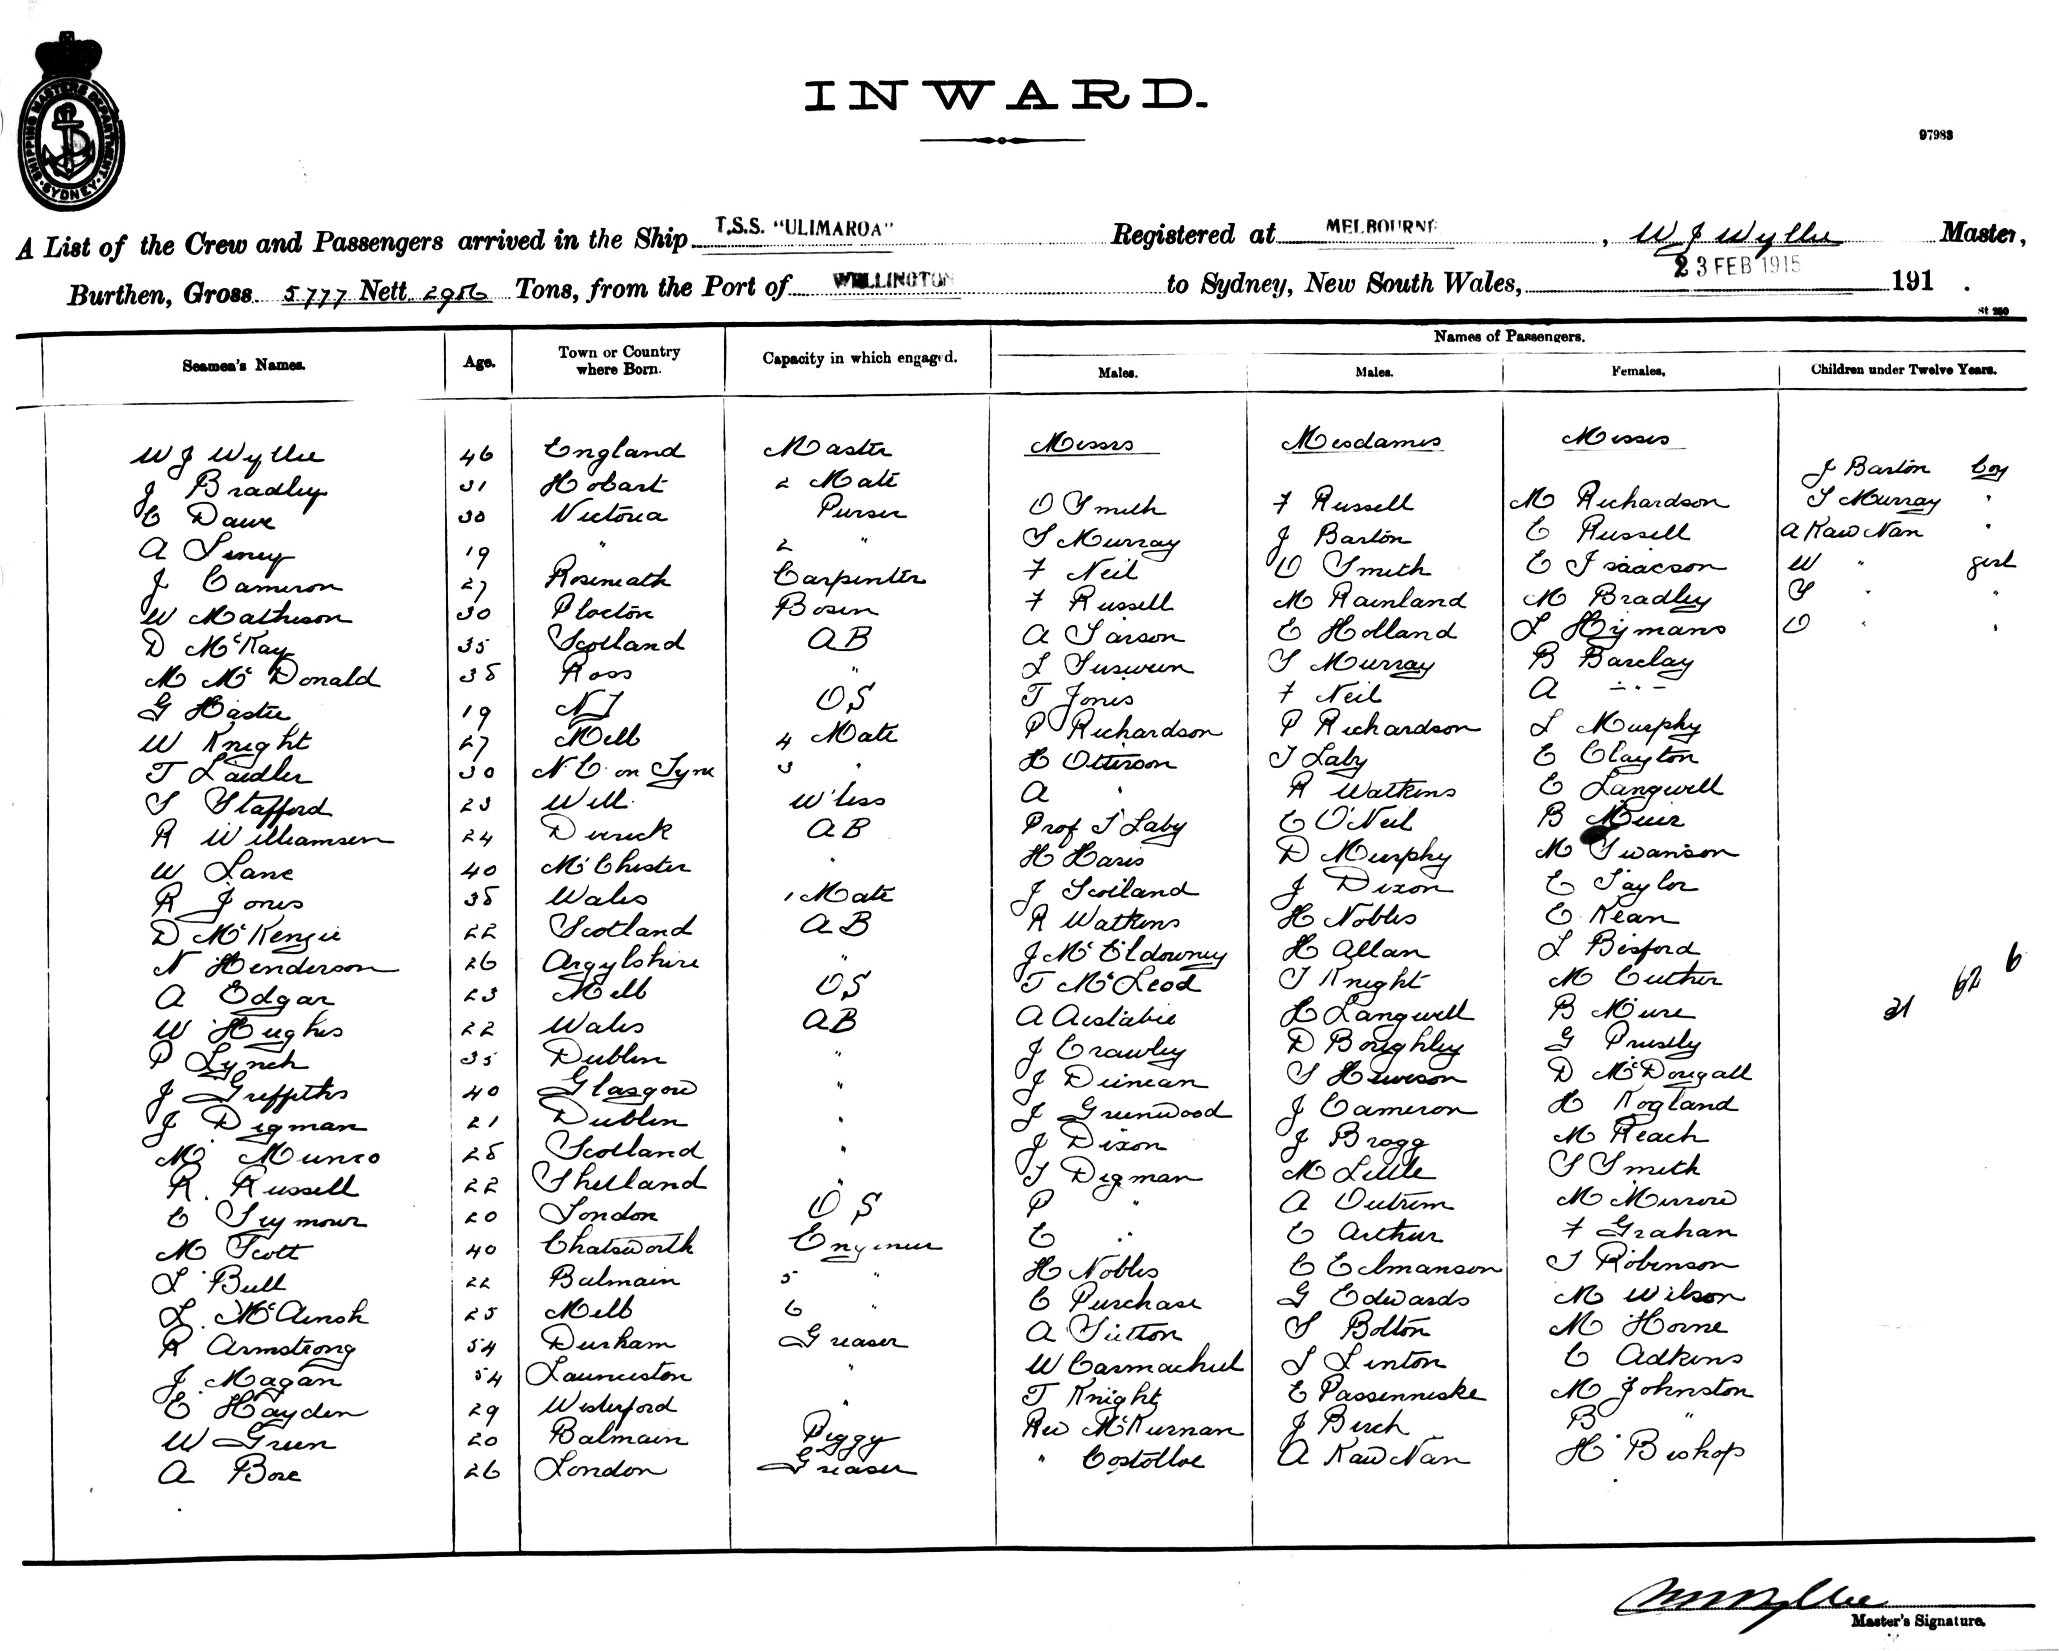 INWARD.
97983
SHIPPING MASTERS DEPARTMENT SYDNEY
A List of the Crew and Passengers arrived in the Ship T.S.S. "ULIMAROA" Registered at MELBOURNE, W J Wyllie Master,
Burthen, Gross 5777 Nett 2956 Tons, from the Port of WELLINGTON to Sydney, New South Wales, 23 FEB 1915 191 .
St 250
Names of Passengers.
Seamen's Names. Age. Town or Country where Born. Capacity in which engaged. Males. Males. Females. Children under Twelve Years.
Messrs Mesdames Misses
W J Wyllie 46 England Master J Barton boy
J Bradley 31 Hobart 2 Mate O Smith F Russell M Richardson S Murray "
C Dawe 30 Victoria Purser S Murray J Barton E Russell A Kaw Nan "
A 19 " 2 " F Neil O Smith E Isaacson W " girl
J Cameron 27 Roseneath Carpenter F Russell M Rainland M Bradley S " "
W Matheson 30 Plocton Bosun A Sarson E Holland L Hymans O " "
D McKay 35 Scotland AB L S Murray B Barclay
M McDonald 38 Ross " T Jones F Neil A " "
G Hastie 19 NZ OS P Richardson P Richardson L Murphy
W Knight 27 Melb 4 Mate H Otterson T Laby E Clayton
T Laidler 30 N C on Tyne 3 " A " R Watkins E Langwell
S Stafford 23 Well W'less Prof T Laby C O'Neil B Muir
R Williamson 24 AB H Haris D Murphy M Swanson
W Lane 40 M'Chester " J Scotland J Dixon E Taylor
R Jones 38 Wales 1 Mate R Watkins H Nobles E Kean
D McKenzie 22 Scotland AB J McEldowney H Allan L Bisford
N Henderson 26 Argylshire " T McLeod T Knight M Cuther
A Edgar 23 Melb OS A Aislabie H Langwell B Mure
W Hughes 22 Wales AB J Crawley D Boughley G Prustly
P Lynch 35 Dublin " J Duncan S Hewson D McDougall
J Griffiths 40 Glasgow " J Greenwood J Cameron H Rogland
J Digman 21 Dublin " J Dixon J Bragg M Reach
M Munro 28 Scotland " T Digman M Little S Smith
R. Russell 22 Shetland " P " A Outrim M
E Seymour 20 London OS E " E Arthur F Grahan
M Scott 40 Chatsworth Engineer H Nobles E Edmanson T Robinson
L Bull 22 Balmain 5 " E Purchase G Edwards M Wilson
L. McAinsh 25 Melb 6 " A Sutton S Bolton M Horne
R Armstrong 54 Durham Greaser W Carmachiel S Linton E Adkins
J Magan 54 Launceston " T Knight E Passenniske M Johnston
E Hayden 29 Westerford " Rev McKurnan J Birch B "
W Green 20 Balmain Peggy " Costolloe A Kaw Nan H Bishop
A Bore 26 London Greaser
31 62 6
Master's Signature.